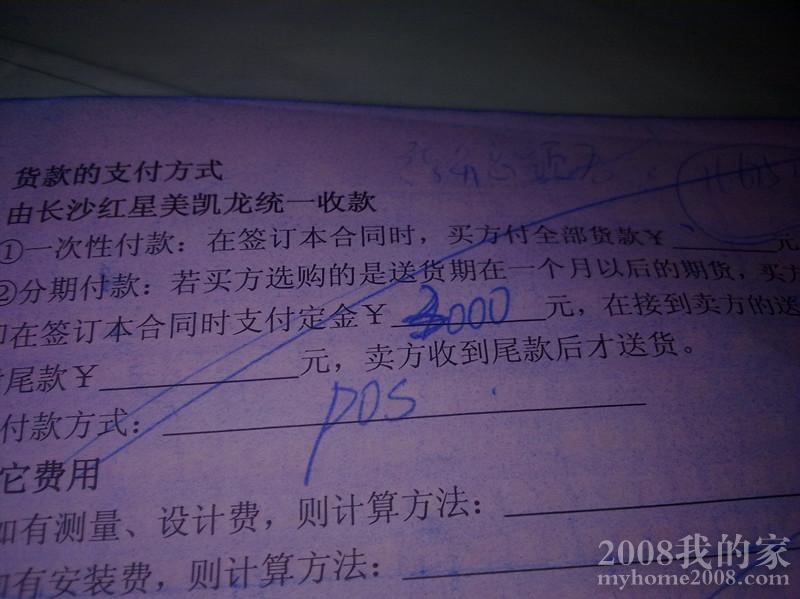 货款的支付方式
由长沙红星美凯龙统一收款
①一次性付款：在签订本合同时，买方付全部货款￥______元
②分期付款：若买方选购的是送货期在一个月以后的期货，买方
在签订本合同时支付定金￥ 3000 元，在接到卖方的送
尾款￥______元，卖方收到尾款后才送货。
付款方式：pos
它费用
如有测量、设计费，则计算方法：
有安装费，则计算方法：
2008我的家
myhome2008.com